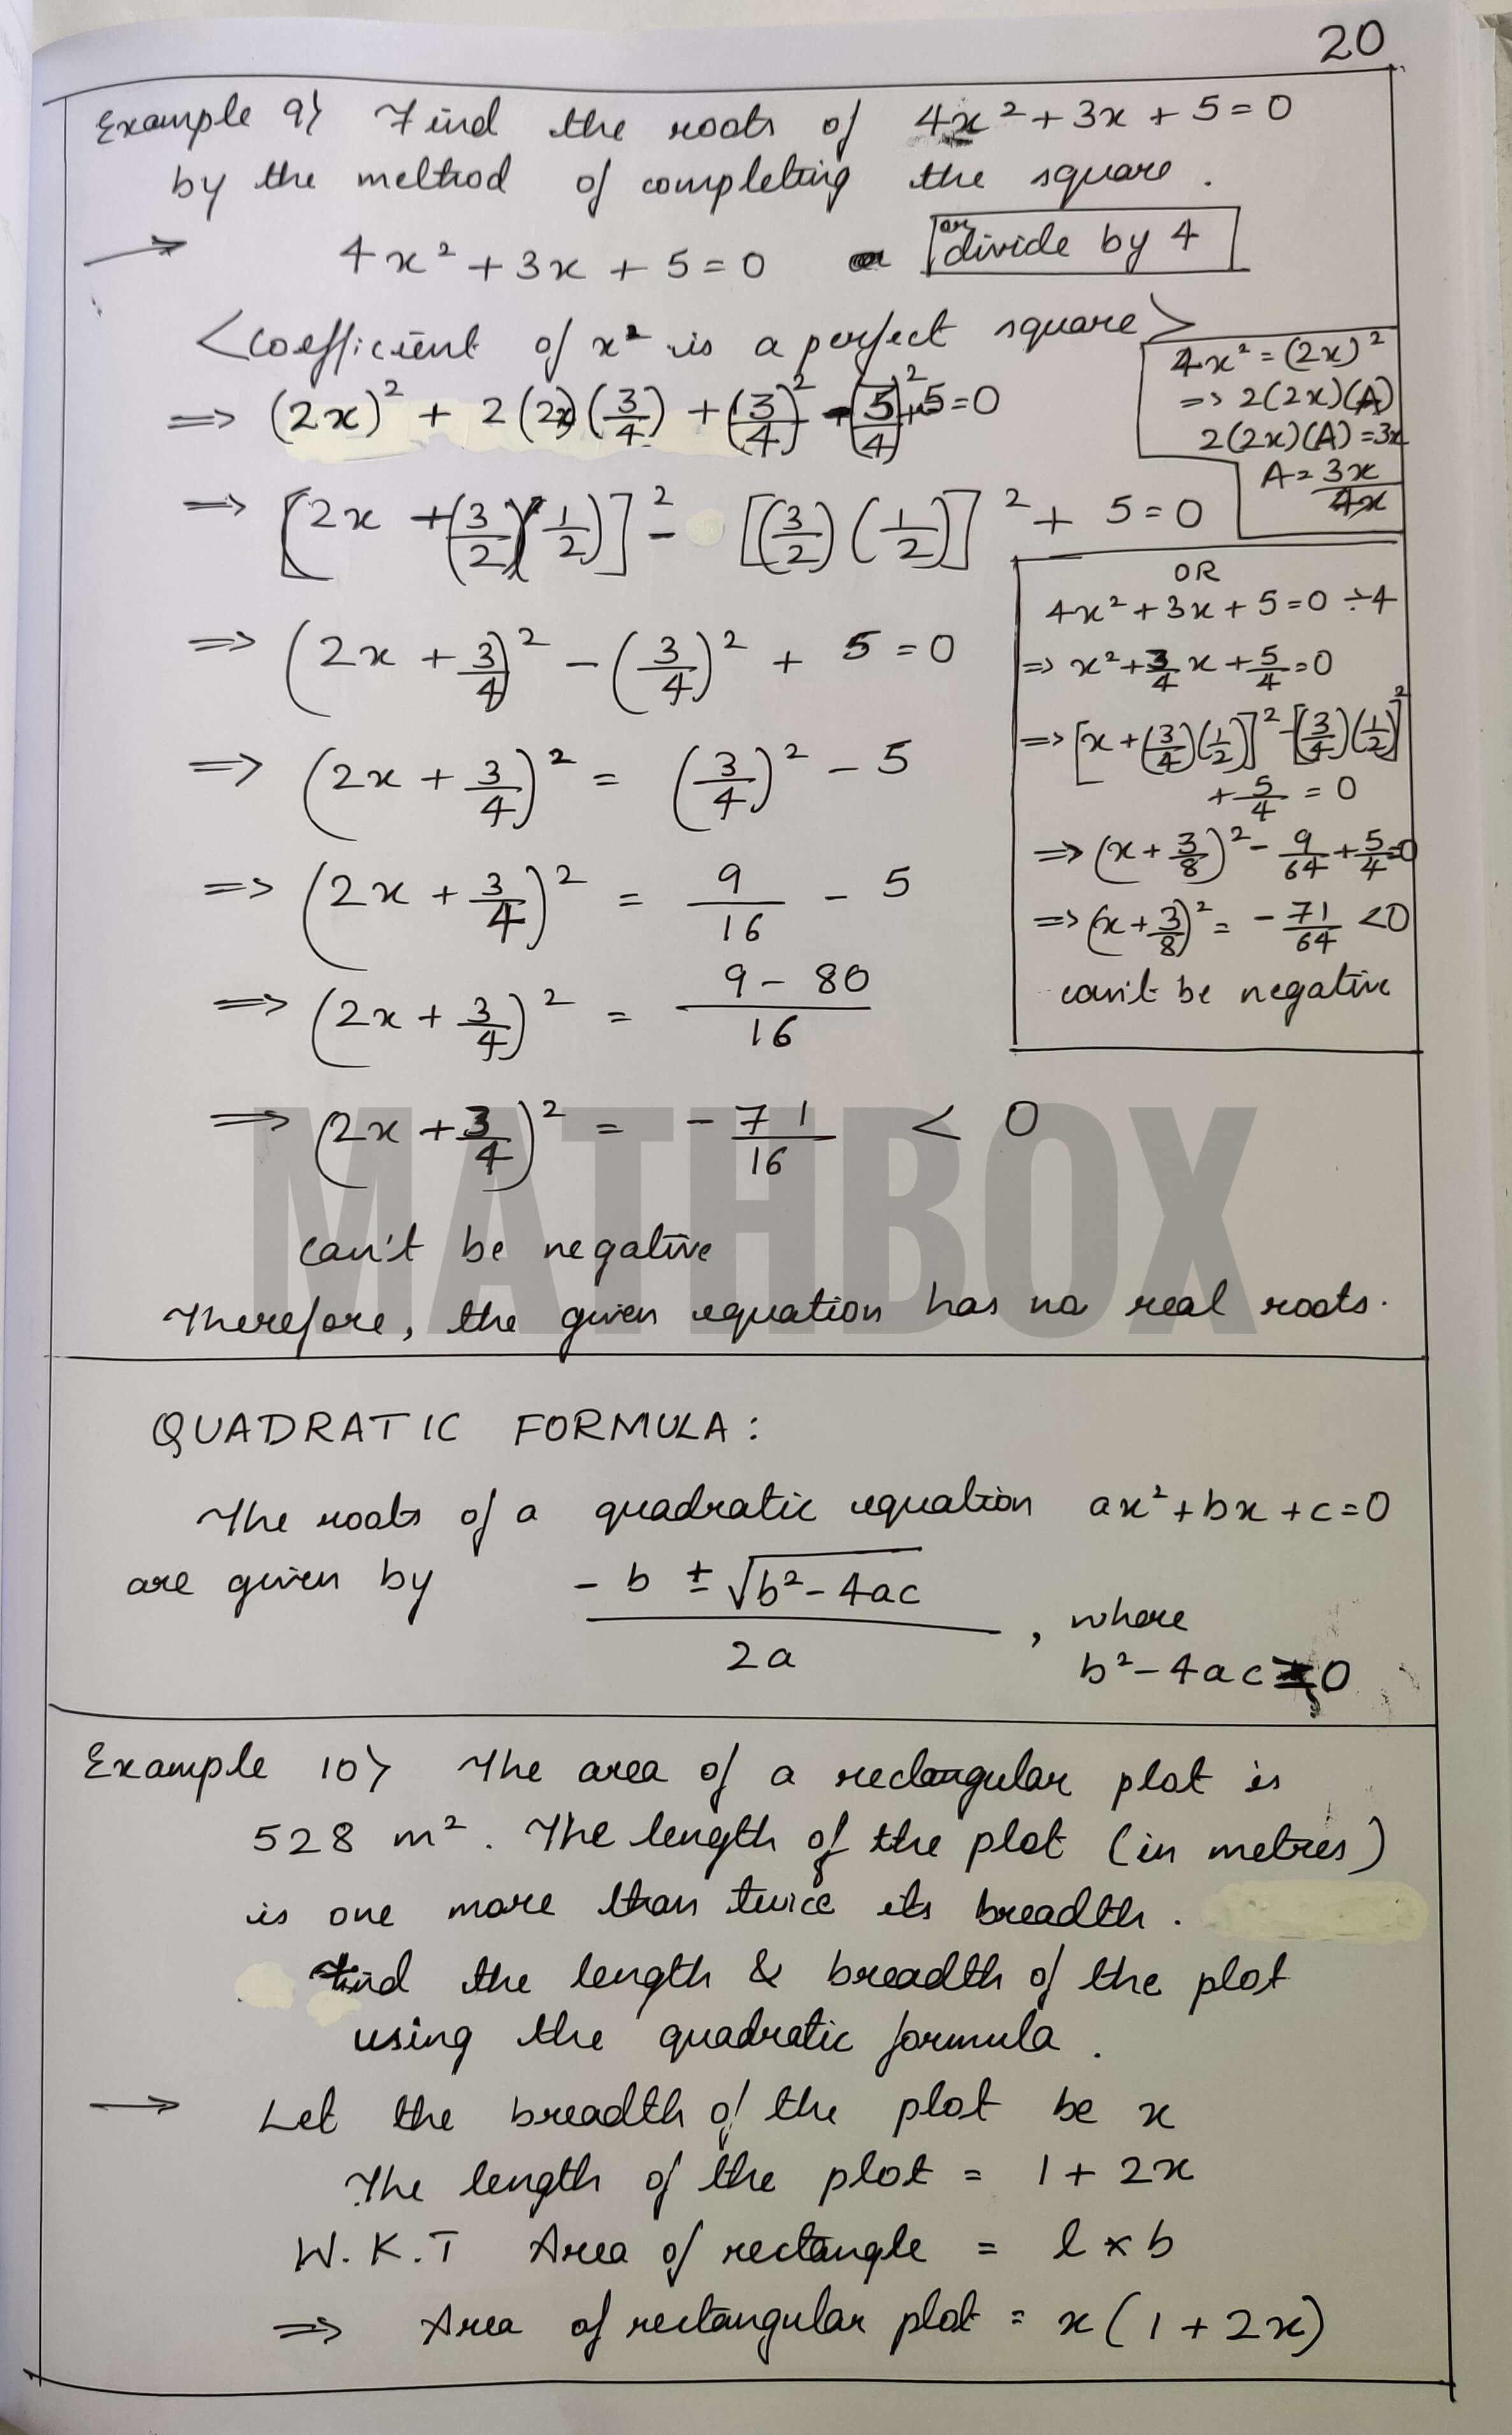 20
Example 9) Find the roots of 4x² + 3x + 5 = 0
by the method of completing the square.
→ 4x² + 3x + 5 = 0 or divide by 4
<Coefficient of x² is a perfect square>
⇒ (2x)² + 2(2x)(3/4) + (3/4)² - (3/4)² + 5 = 0
4x² = (2x)²
⇒ 2(2x)(A)
2(2x)(A) = 3x
A = 3x/4x
⇒ [2x + (3/2)(1/2)]² - [(3/2)(1/2)]² + 5 = 0
⇒ (2x + 3/4)² - (3/4)² + 5 = 0
⇒ (2x + 3/4)² = (3/4)² - 5
⇒ (2x + 3/4)² = 9/16 - 5
⇒ (2x + 3/4)² = 9 - 80/16
⇒ (2x + 3/4)² = - 71/16 < 0
can't be negative
Therefore, the given equation has no real roots.
OR
4x² + 3x + 5 = 0 ÷ 4
⇒ x² + 3/4 x + 5/4 = 0
⇒ [x + (3/4)(1/2)]² - [(3/4)(1/2)]²
+ 5/4 = 0
⇒ (x + 3/8)² - 9/64 + 5/4 = 0
⇒ (x + 3/8)² = - 71/64 < 0
can't be negative
MATHBOX
QUADRATIC FORMULA:
The roots of a quadratic equation ax² + bx + c = 0
are given by - b ± √b² - 4ac / 2a , where
b² - 4ac ≥ 0
Example 10) The area of a rectangular plot is
528 m². The length of the plot (in metres)
is one more than twice its breadth.
Find the length & breadth of the plot
using the quadratic formula.
→ Let the breadth of the plot be x
The length of the plot = 1 + 2x
W.K.T Area of rectangle = l × b
⇒ Area of rectangular plot = x(1 + 2x)